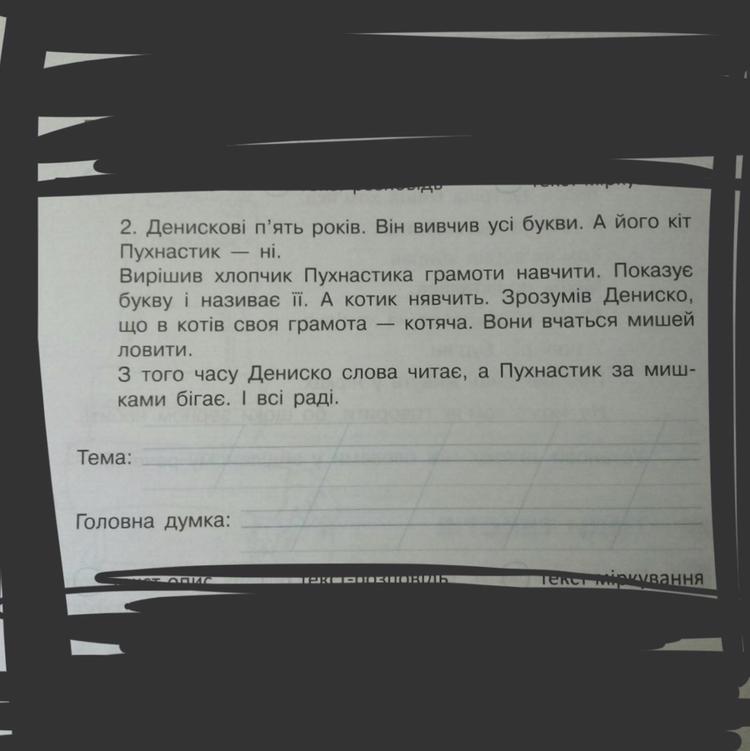 2. Денискові п'ять років. Він вивчив усі букви. А його кіт
Пухнастик — ні.
Вирішив хлопчик Пухнастика грамоти навчити. Показує
букву і називає її. А котик нявчить. Зрозумів Дениско,
що в котів своя грамота — котяча. Вони вчаться мишей
ловити.
З того часу Дениско слова читає, а Пухнастик за миш-
ками бігає. І всі раді.
Тема:
Головна думка:
текст-розповідь текст-міркування